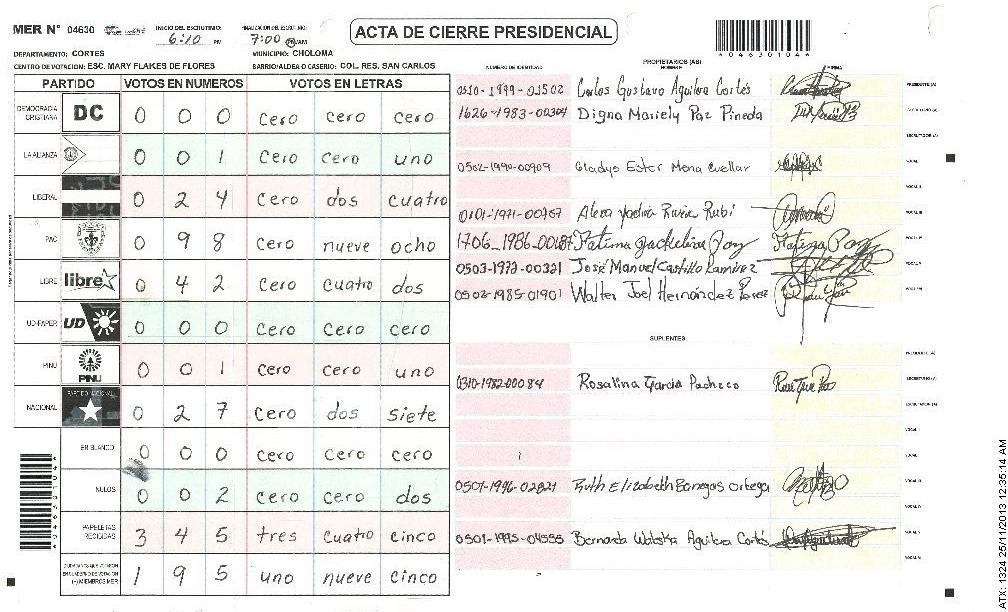 MER Nº 04630
INICIO DEL ESCRUTINIO: 6:10 PM
FINALIZACIÓN DEL ESCRUTINIO: 7:00 PM/AM
ACTA DE CIERRE PRESIDENCIAL
*04630104*
DEPARTAMENTO: CORTES
MUNICIPIO: CHOLOMA
CENTRO DE VOTACION: ESC. MARY FLAKES DE FLORES
BARRIO/ALDEA O CASERIO: COL. RES. SAN CARLOS
PARTIDO VOTOS EN NUMEROS VOTOS EN LETRAS
DEMOCRACIA CRISTIANA DC 0 0 0 cero cero cero
LA ALIANZA 0 0 1 cero cero uno
LIBERAL 0 2 4 cero dos cuatro
PAC 0 9 8 cero nueve ocho
LIBRE libre 0 4 2 cero cuatro dos
UD-FAPER UD 0 0 0 cero cero cero
PINU PINU 0 0 1 cero cero uno
NACIONAL PARTIDO NACIONAL 0 2 7 cero dos siete
EN BLANCO 0 0 0 cero cero cero
NULOS 0 0 2 cero cero dos
PAPELETAS RECIBIDAS 3 4 5 tres cuatro cinco
CIUDADANOS QUE VOTARON EN CUADERNO DE VOTACION (+) MIEMBROS MER 1 9 5 uno nueve cinco
PROPIETARIOS (AS)
NUMERO DE IDENTIDAD NOMBRE FIRMA
0510-1999-01502 Carlos Gustavo Aguilera Cortés PRESIDENTE (A)
1626-1983-00304 Digna Mariely Paz Pineda SECRETARIO (A)
ESCRUTADOR (A)
0502-1990-00909 Gladys Ester Mena Cuellar VOCAL I
VOCAL II
0101-1971-00967 Rivera Rubi VOCAL III
1706-1986-00687 Fatima Jackelina Paz
0503-1972-00321 José Manuel Castillo Ramirez VOCAL V
0502-1985-01901 Walter Joel Hernández Perez
SUPLENTES
PRESIDENTE (A)
0310-1982-00084 Rosalina Garcia Pacheco SECRETARIO (A)
ESCRUTADOR (A)
VOCAL I
VOCAL II
0501-1996-02821 Ruth Elizabeth Banegas Ortega VOCAL III
VOCAL IV
0501-1995-04555 Bernarda Waleska Aguilera Cortés VOCAL V
VOCAL VI
ATX: 1324 25/11/2013 12:35:14 AM